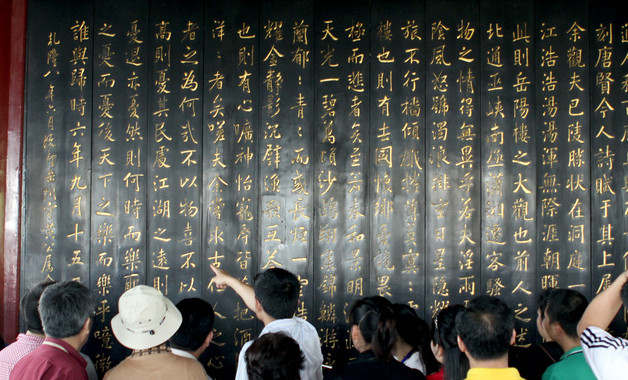 刻唐賢今人詩賦于其上屬
余觀夫巴陵勝狀在洞庭一
江浩浩湯湯渾無際涯朝暉
此則岳陽樓之大觀也前人之
北通巫峽南極瀟湘遷客騷
物之情得無異乎若夫淫雨
陰風怒號濁浪排空日星隱
旅不行檣傾楫摧薄暮冥:
樓也則有去國懷鄉憂讒畏
極而悲者矣至若春和景明
天光一碧萬頃沙鷗翔集錦鱗
蘭郁:青:而或長煙一空皓
耀金靜影沉璧漁歌互答
也則有心曠神怡寵辱皆忘把酒
洋:者矣嗟夫余嘗求古仁人之心
者之為何哉不以物喜不以
高則憂其民處江湖之遠則
憂退亦憂然則何時而樂耶
之憂而憂後天下之樂而樂乎噫
誰與歸時六年九月十五
乾隆八年六月